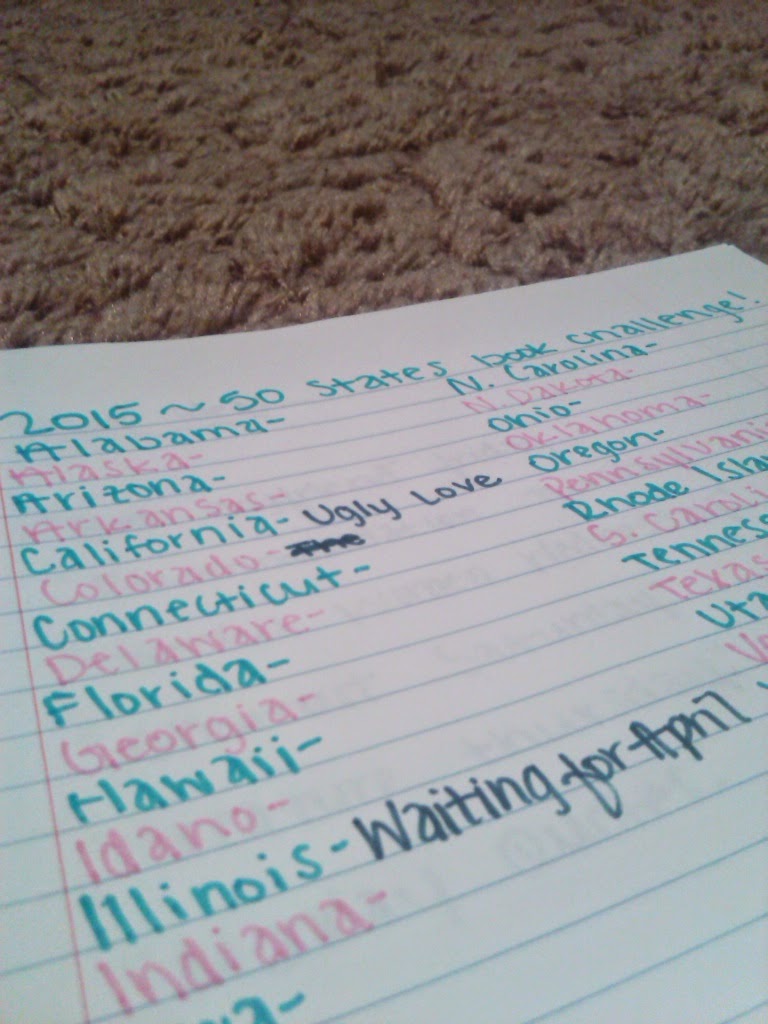 2015 ~ 50 States book challenge!
Alabama-
Alaska-
Arizona-
Arkansas-
California- Ugly Love
Colorado-
Connecticut-
Delaware-
Florida-
Georgia-
Hawaii-
Idaho-
Illinois- Waiting for April
Indiana-
N. Carolina-
N. Dakota-
Ohio-
Oklahoma-
Oregon-
Pennsylvani
Rhode Isla
S. Caroli
Tenness
Texas
Uta